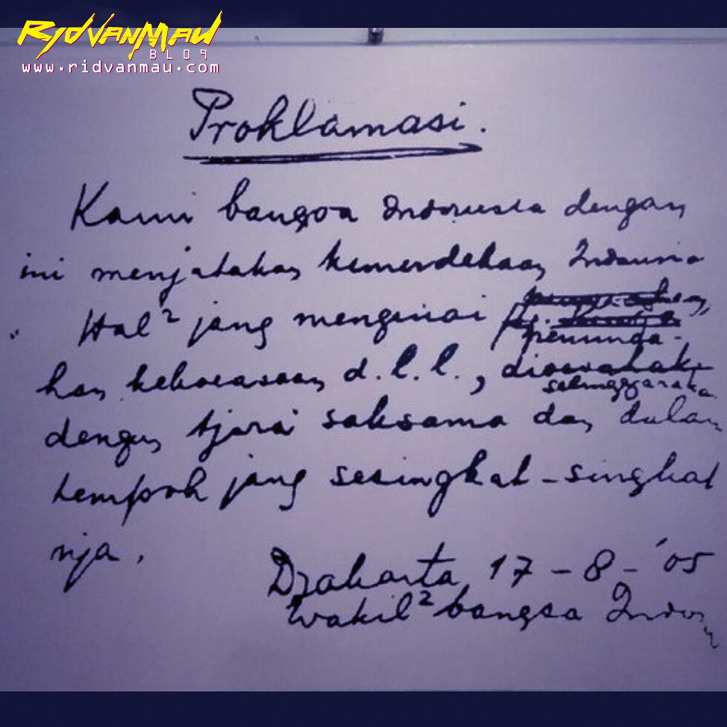 RIDVANMAU
BLOG
www.ridvanmau.com
Proklamasi.
Kami bangsa Indonesia dengan
ini menjatakan kemerdekaan Indonesia
Hal² jang mengenai
peminda-
han kekoeasaan d.l.l.,
diselenggarakan
dengan tjara saksama dan dalam
tempoh jang sesingkat-singkat
nja.
Djakarta, 17 - 8 - '05
Wakil² bangsa Indon